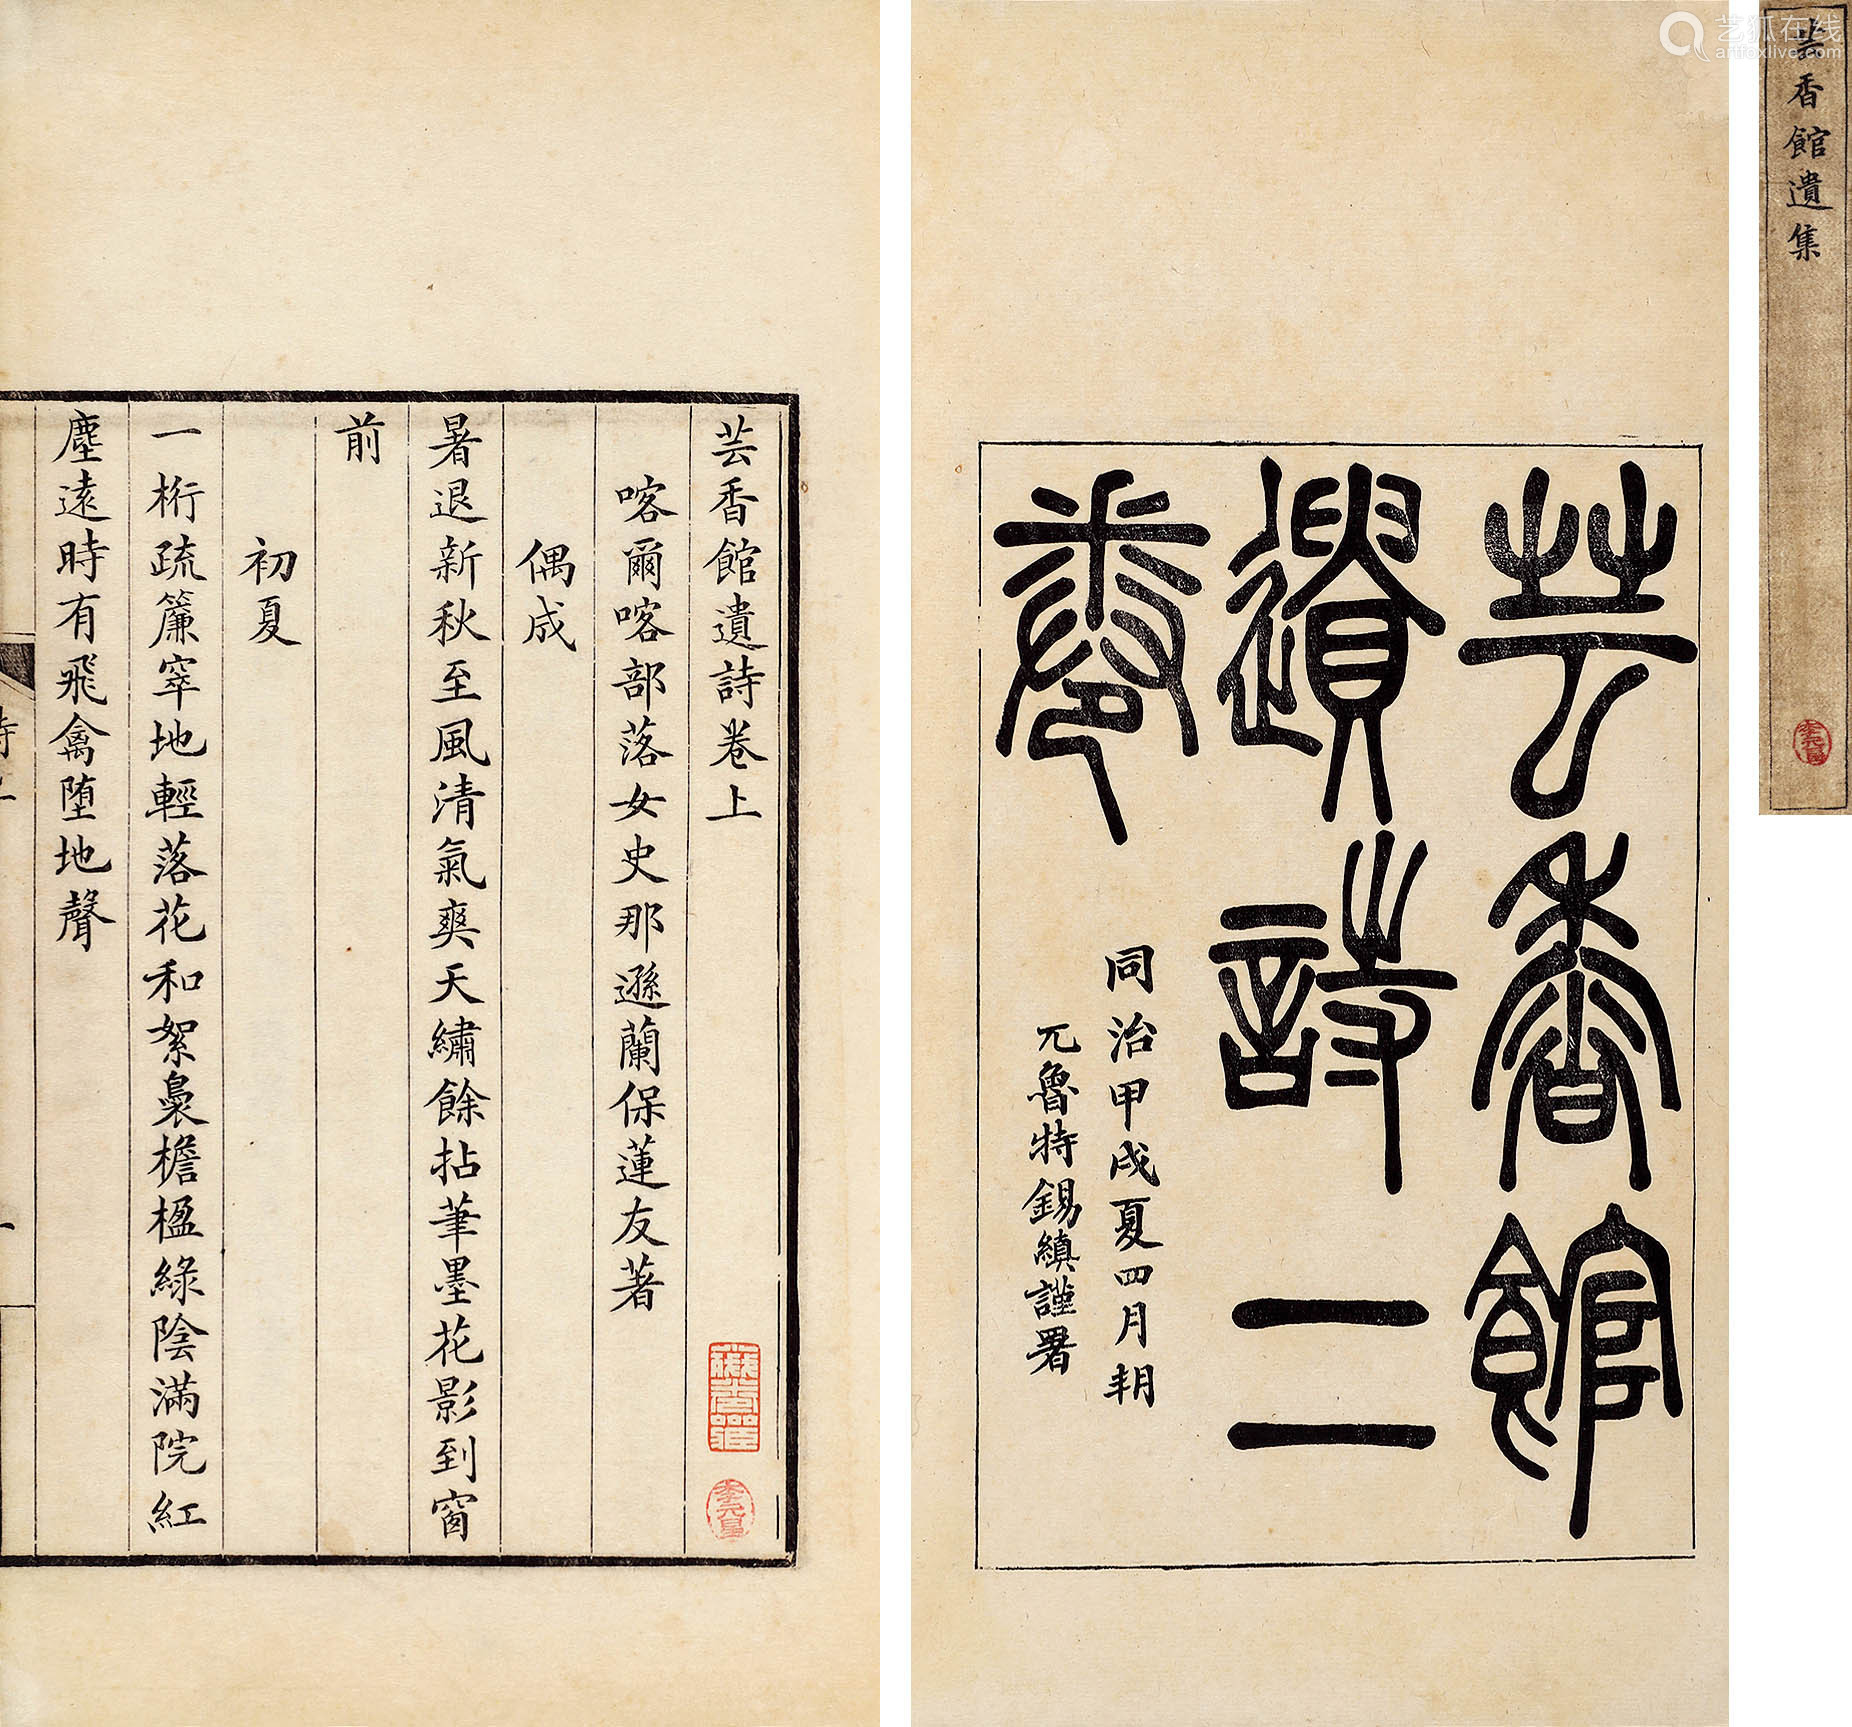 芸香館遺集
李元星
艺狐在线
artfoxlive.com
芸香館
遺詩二
卷
同治甲戌夏四月朔
兀魯特錫縝謹署
芸香館遺詩卷上
喀爾喀部落女史那遜蘭保蓮友著
偶成
暑退新秋至風清氣爽天繡餘拈筆墨花影到窗
前
初夏
一桁疏簾窣地輕落花和絮裊檐楹綠陰滿院紅
塵遠時有飛禽墮地聲
李元星